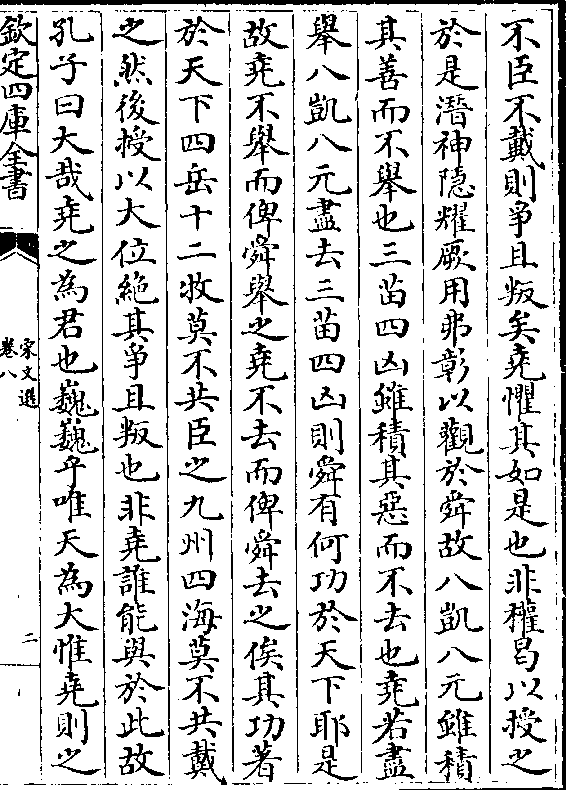 不臣不戴則爭且叛矣堯懼其如是也非權曷以授之
於是潛神隱耀厥用弗彰以觀於舜故八凱八元雖積
其善而不舉也三苗四凶雖積其惡而不去也堯若盡
舉八凱八元盡去三苗四凶則舜有何功於天下耶是
故堯不舉而俾舜舉之堯不去而俾舜去之俟其功著
於天下四岳十二牧莫不共臣之九州四海莫不共戴
之然後授以大位絶其爭且叛也非堯誰能與於此故
孔子曰大哉堯之為君也巍巍乎唯天為大惟堯則之
欽定四庫全書
宋文選
卷八
二